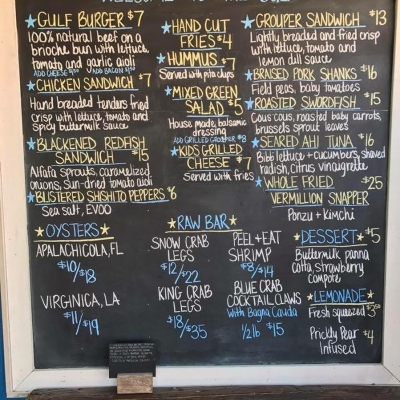 GULF BURGER $7
100% natural beef on a
brioche bun with lettuce,
tomato and garlic aioli
ADD CHEESE $.50 ADD BACON $1.50
CHICKEN SANDWICH $7
Hand breaded tenders fried
crisp with lettuce, tomato and
spicy buttermilk sauce
BLACKENED REDFISH
SANDWICH $15
Alfafa sprouts, caramelized
onions, sun-dried tomato aioli
BLISTERED SHISHITO PEPPERS $6
Sea salt, EVOO
HAND CUT
FRIES $4
HUMMUS $7
Served with pita chips
MIXED GREEN
SALAD $5
House made, balsamic
dressing
ADD GRILLED GROUPER $8
KIDS GRILLED
CHEESE $7
Served with fries
GROUPER SANDWICH $13
Lightly breaded and fried crisp
with lettuce, tomato and
lemon dill sauce
BRAISED PORK SHANKS $16
Field peas, baby tomatoes
ROASTED SWORDFISH $15
Cous cous, roasted baby carrots,
brussels sprout leaves
SEARED AHI TUNA $16
Bibb lettuce + cucumbers, shaved
radish, citrus vinaigrette
WHOLE FRIED $25
VERMILLION SNAPPER
Ponzu + kimchi
OYSTERS
APALACHICOLA, FL
$10/$18
VIRGINICA, LA
$11/$19
RAW BAR
SNOW CRAB
LEGS
$12/$22
KING CRAB
LEGS
$18/$35
PEEL + EAT
SHRIMP
$8/$14
BLUE CRAB
COCKTAIL CLAWS
With Bagna Cauda
1/2 lb $15
DESSERT $5
Buttermilk panna
cotta, strawberry
compote
LEMONADE
Fresh squeezed $3.50
Prickly Pear $4
Infused